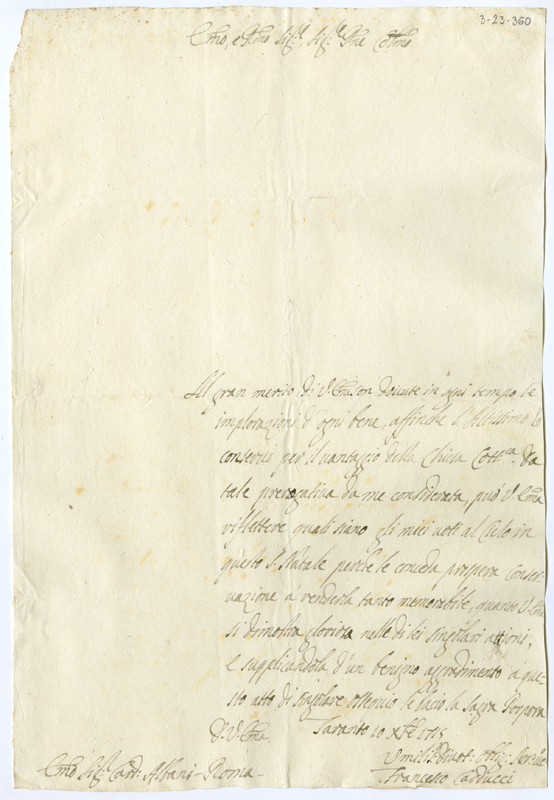 3-23-360
Emo, e Rmo Sig.r, Sig.r Pne Colmo
Al gran merito di V. Em: son dovute in ogni tempo le
implorazioni d'ogni bene, affinche l'Altissimo lo
conservi per il vantaggio della Chiesa Catt.ca. Da
tale prerogativa da me considerata, può V. Ema
riflettere quali siano gli miei voti al Cielo in
questo S. Natale perche le conceda prospera conser-
vazione a renderla tanto memorabile, quanto V. Em:
si dimostra gloriosa nelle di lei singolari attioni;
E supplicandola d'un benigno aggradimento a que-
sto atto di singolare ossequio le bacio la Sagra Porpora
D. V. Ema. Taranto 10 Xbre 1715
Umiliss: Divot: Obblig: Ser:re
Emo Sig.r Card. Albani - Roma - Francesco Carducci